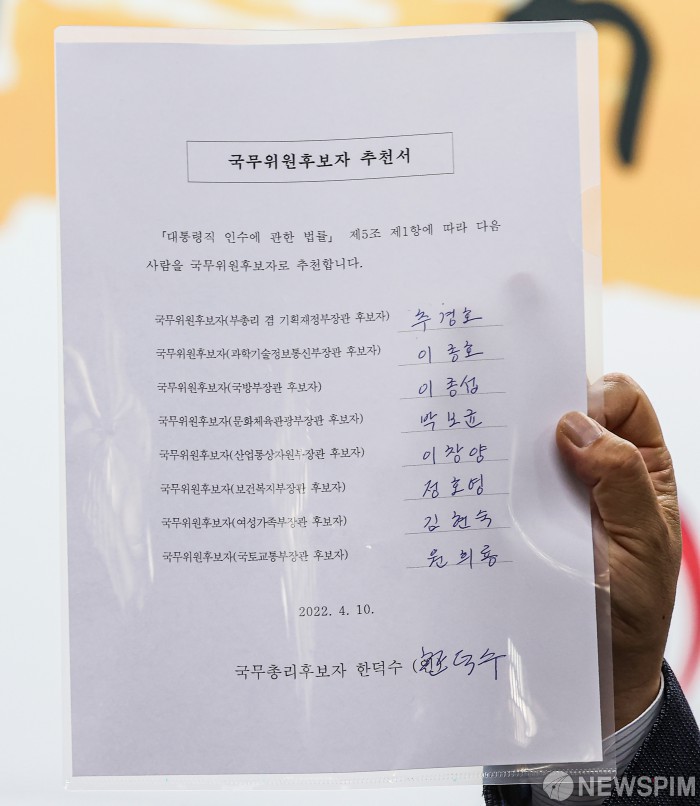 국무위원후보자 추천서
「대통령직 인수에 관한 법률」 제5조 제1항에 따라 다음
사람을 국무위원후보자로 추천합니다.
국무위원후보자(부총리 겸 기획재정부장관 후보자) 추경호
국무위원후보자(과학기술정보통신부장관 후보자) 이종호
국무위원후보자(국방부장관 후보자) 이종섭
국무위원후보자(문화체육관광부장관 후보자) 박보균
국무위원후보자(산업통상자원부장관 후보자) 이창양
국무위원후보자(보건복지부장관 후보자) 정호영
국무위원후보자(여성가족부장관 후보자) 김현숙
국무위원후보자(국토교통부장관 후보자) 원희룡
2022. 4. 10.
국무총리후보자 한덕수 (한덕수
NEWSPIM